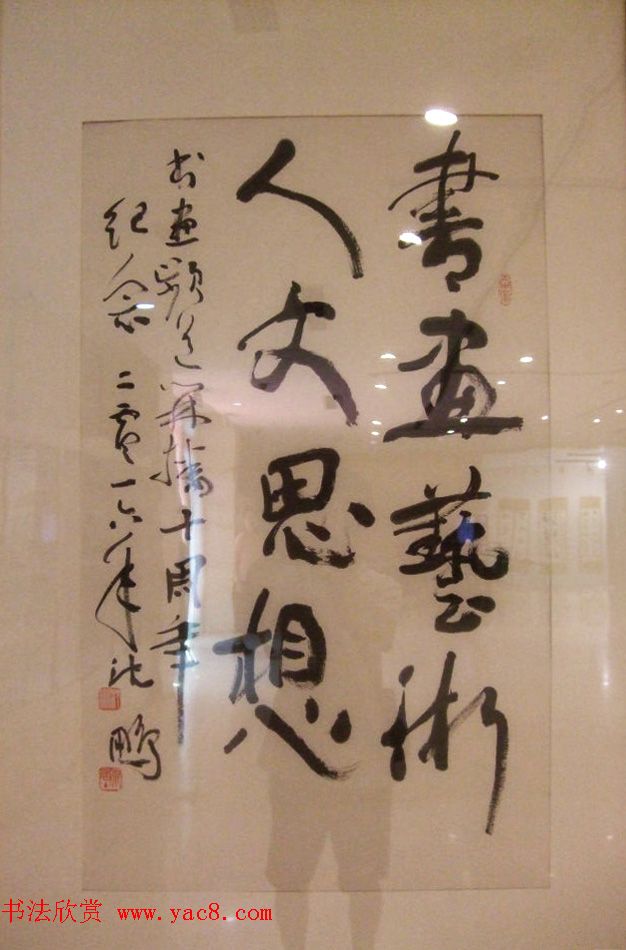 書畫藝術
人文思想
书画频道开播十周年
纪念 二零一六年 沈鹏
书法欣赏 www.yac8.com